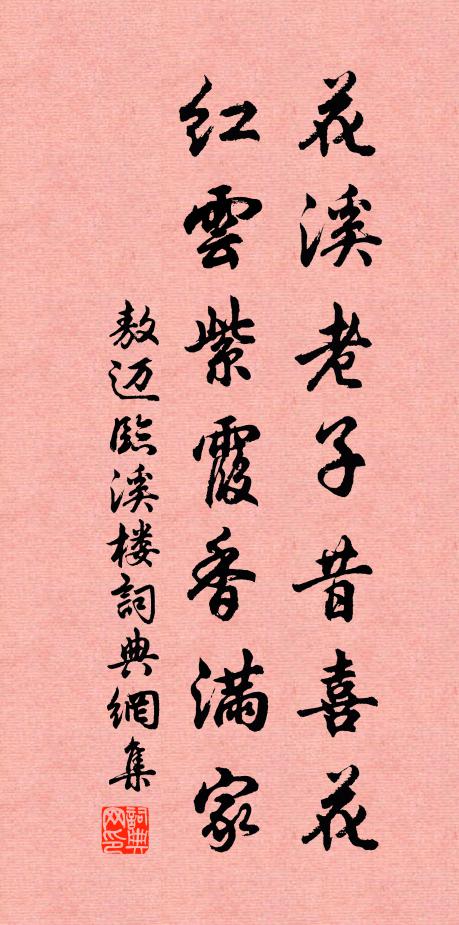 花溪老子昔喜花
紅雲紫霞香滿家
敖迈臨溪楼詞典網集
詞典
网印